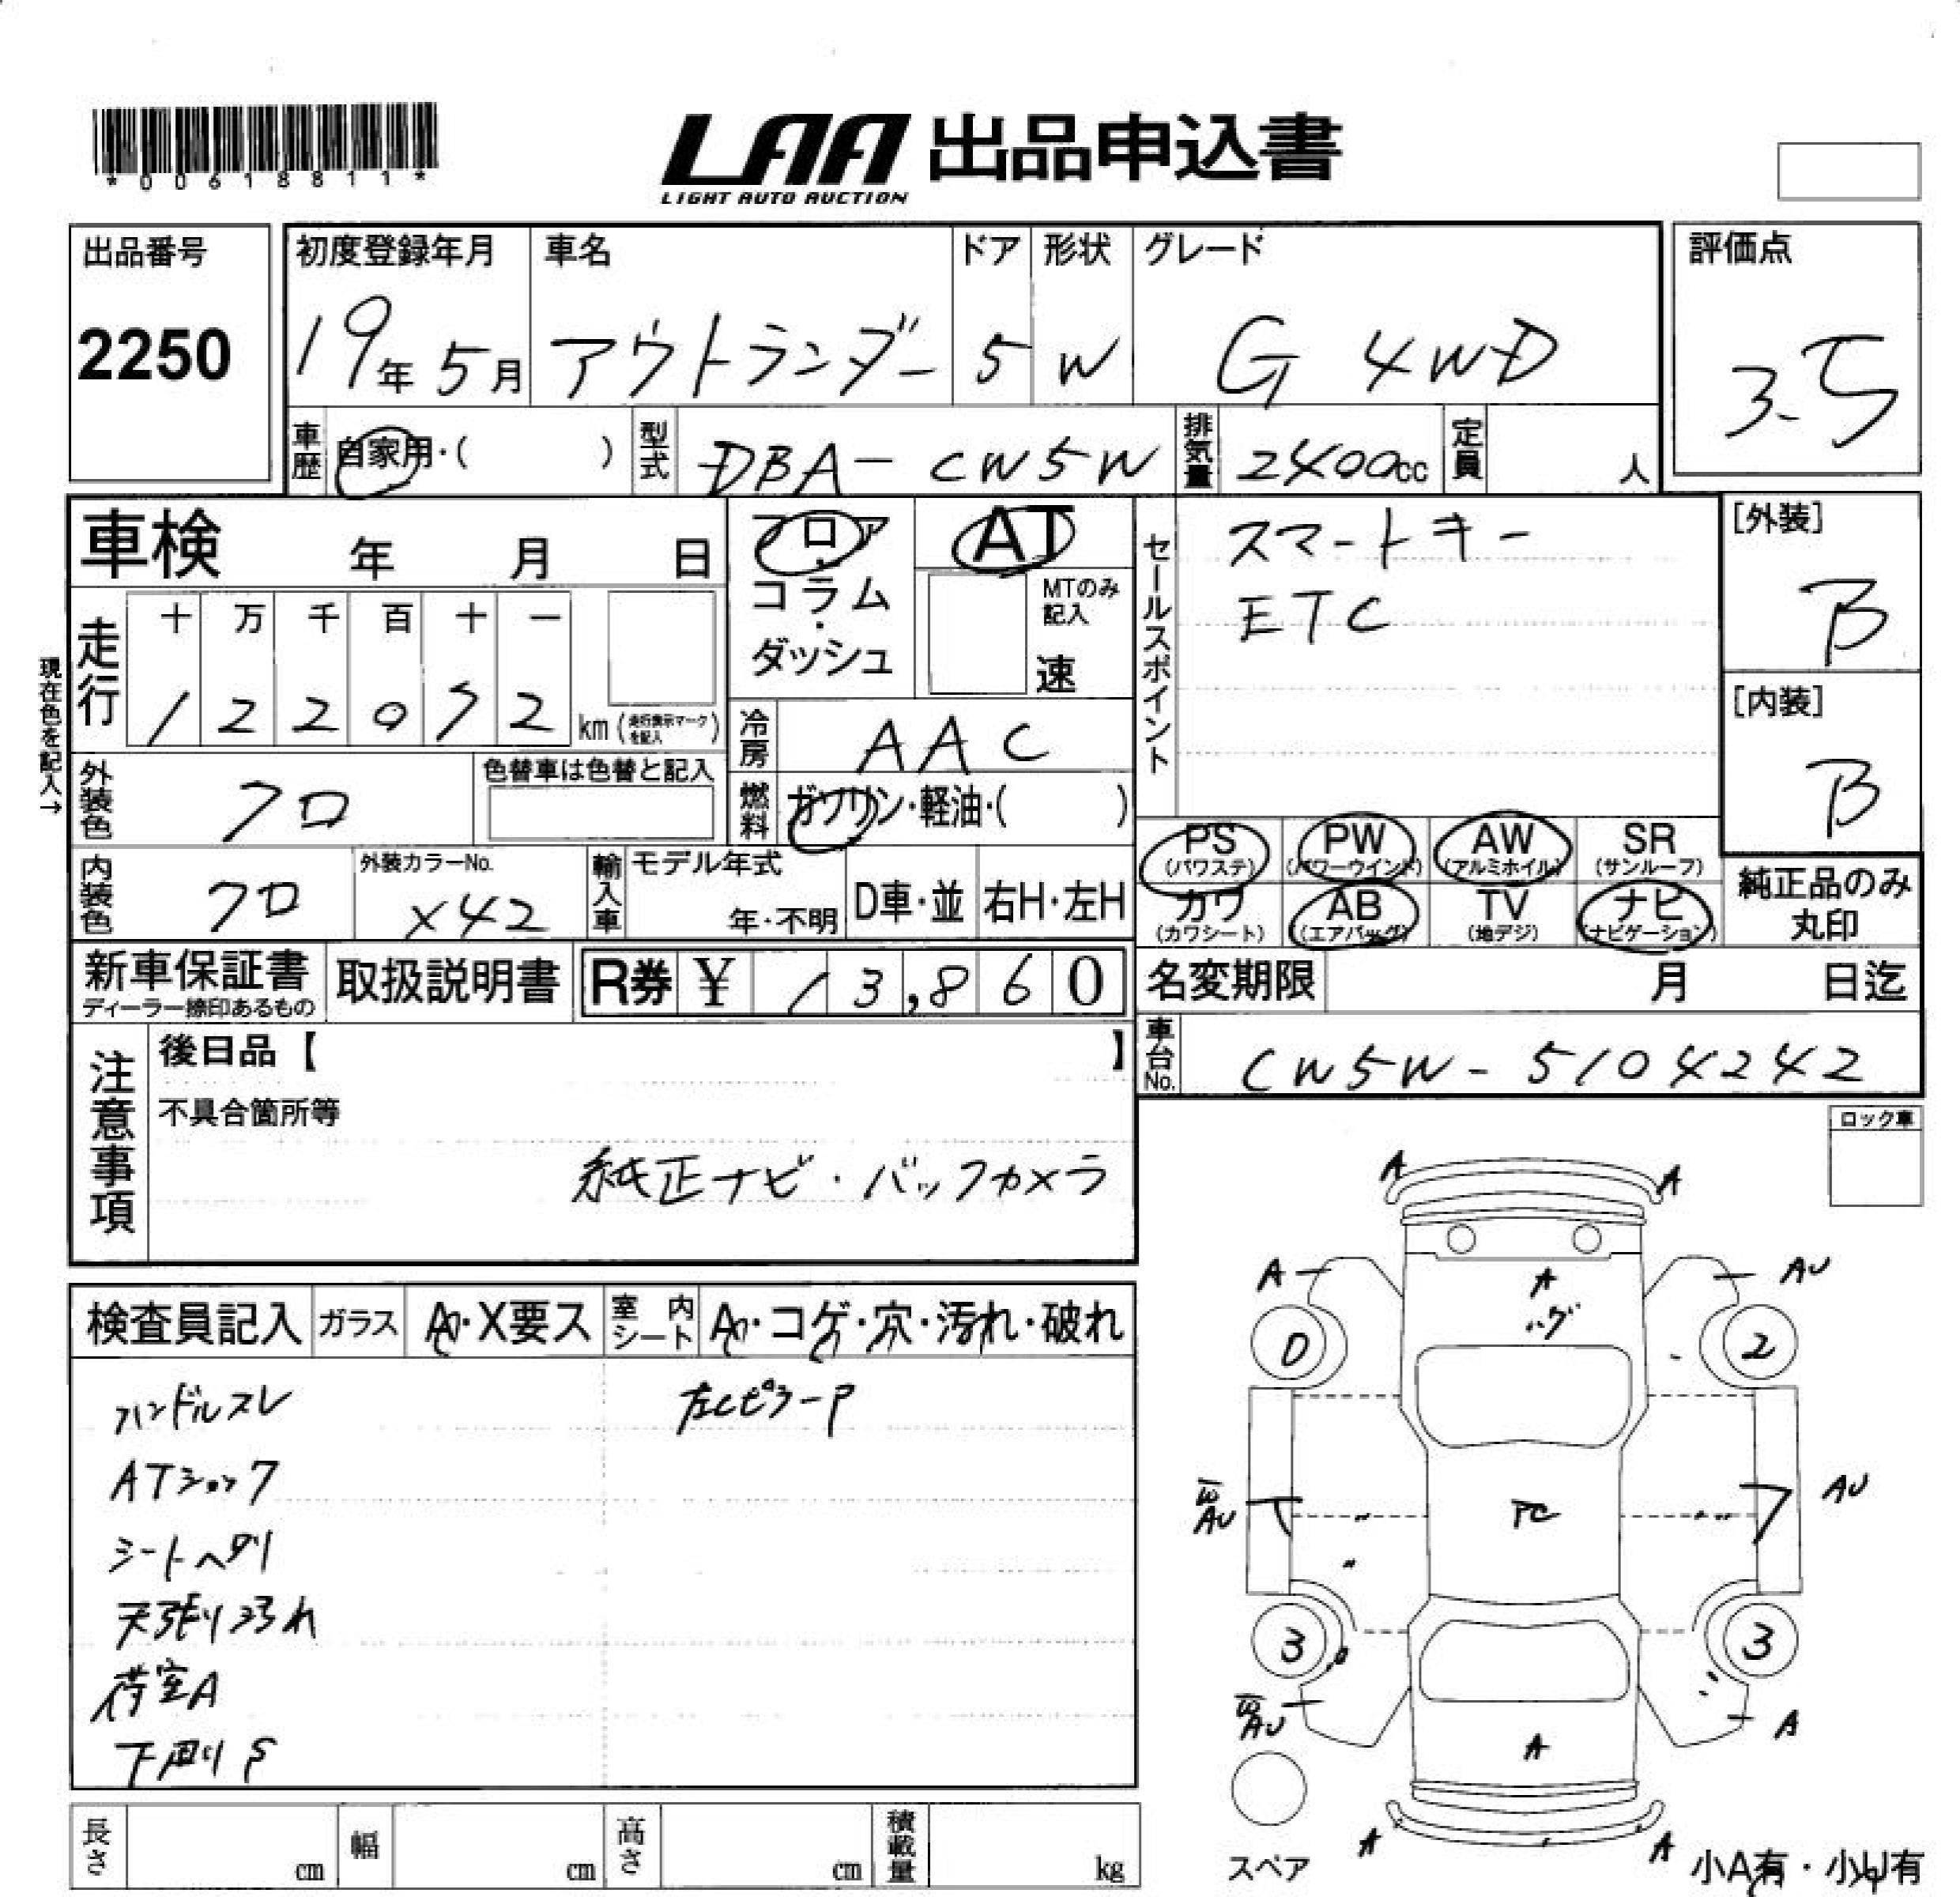 *00618811*
LAA 出品申込書
LIGHT AUTO AUCTION
出品番号
2250
初度登録年月
19年 5月
車名
アウトランダー
ドア
5
形状
W
グレード
G 4WD
評価点
3.5
車歴
自家用・( )
型式
DBA-CW5W
排気量
2400cc
定員
人
車検 年 月 日
フロア
・
コラム
・
ダッシュ
AT
MTのみ
記入
速
セールスポイント
スマートキー
ETC
[外装]
B
[内装]
B
現在色を記入→
走行
十 万 千 百 十 一
km (走行表示マークを記入)
冷房
AAC
外装色
クロ
色替車は色替と記入
燃料
ガソリン・軽油・( )
内装色
クロ
外装カラーNo.
X42
輸入車
モデル年式
年・不明
D車・並
右H・左H
PS
(パワステ)
PW
(パワーウインド)
AW
(アルミホイル)
SR
(サンルーフ)
カワ
(カワシート)
AB
(エアバッグ)
TV
(地デジ)
ナビ
(ナビゲーション)
純正品のみ
丸印
新車保証書
ディーラー捺印あるもの
取扱説明書
R券 ¥ 13,860
名変期限 月 日迄
車台No.
CW5W-5104242
注意事項
後日品【 】
不具合箇所等
純正ナビ・バックカメラ
ロック車
検査員記入
ガラス
A・X要ス
室内
シート
A・コゲ・穴・汚れ・破れ
ハンドルスレ
左CピラーP
ATショック
シートヘタリ
天張り汚れ
荷室A
下廻りS
A A
A A AU
ハゲ
0 2
AU PC AU
3 3
AU A
A
A A
スペア
小A有・小U有
長さ cm
幅 cm
高さ cm
積載量 kg